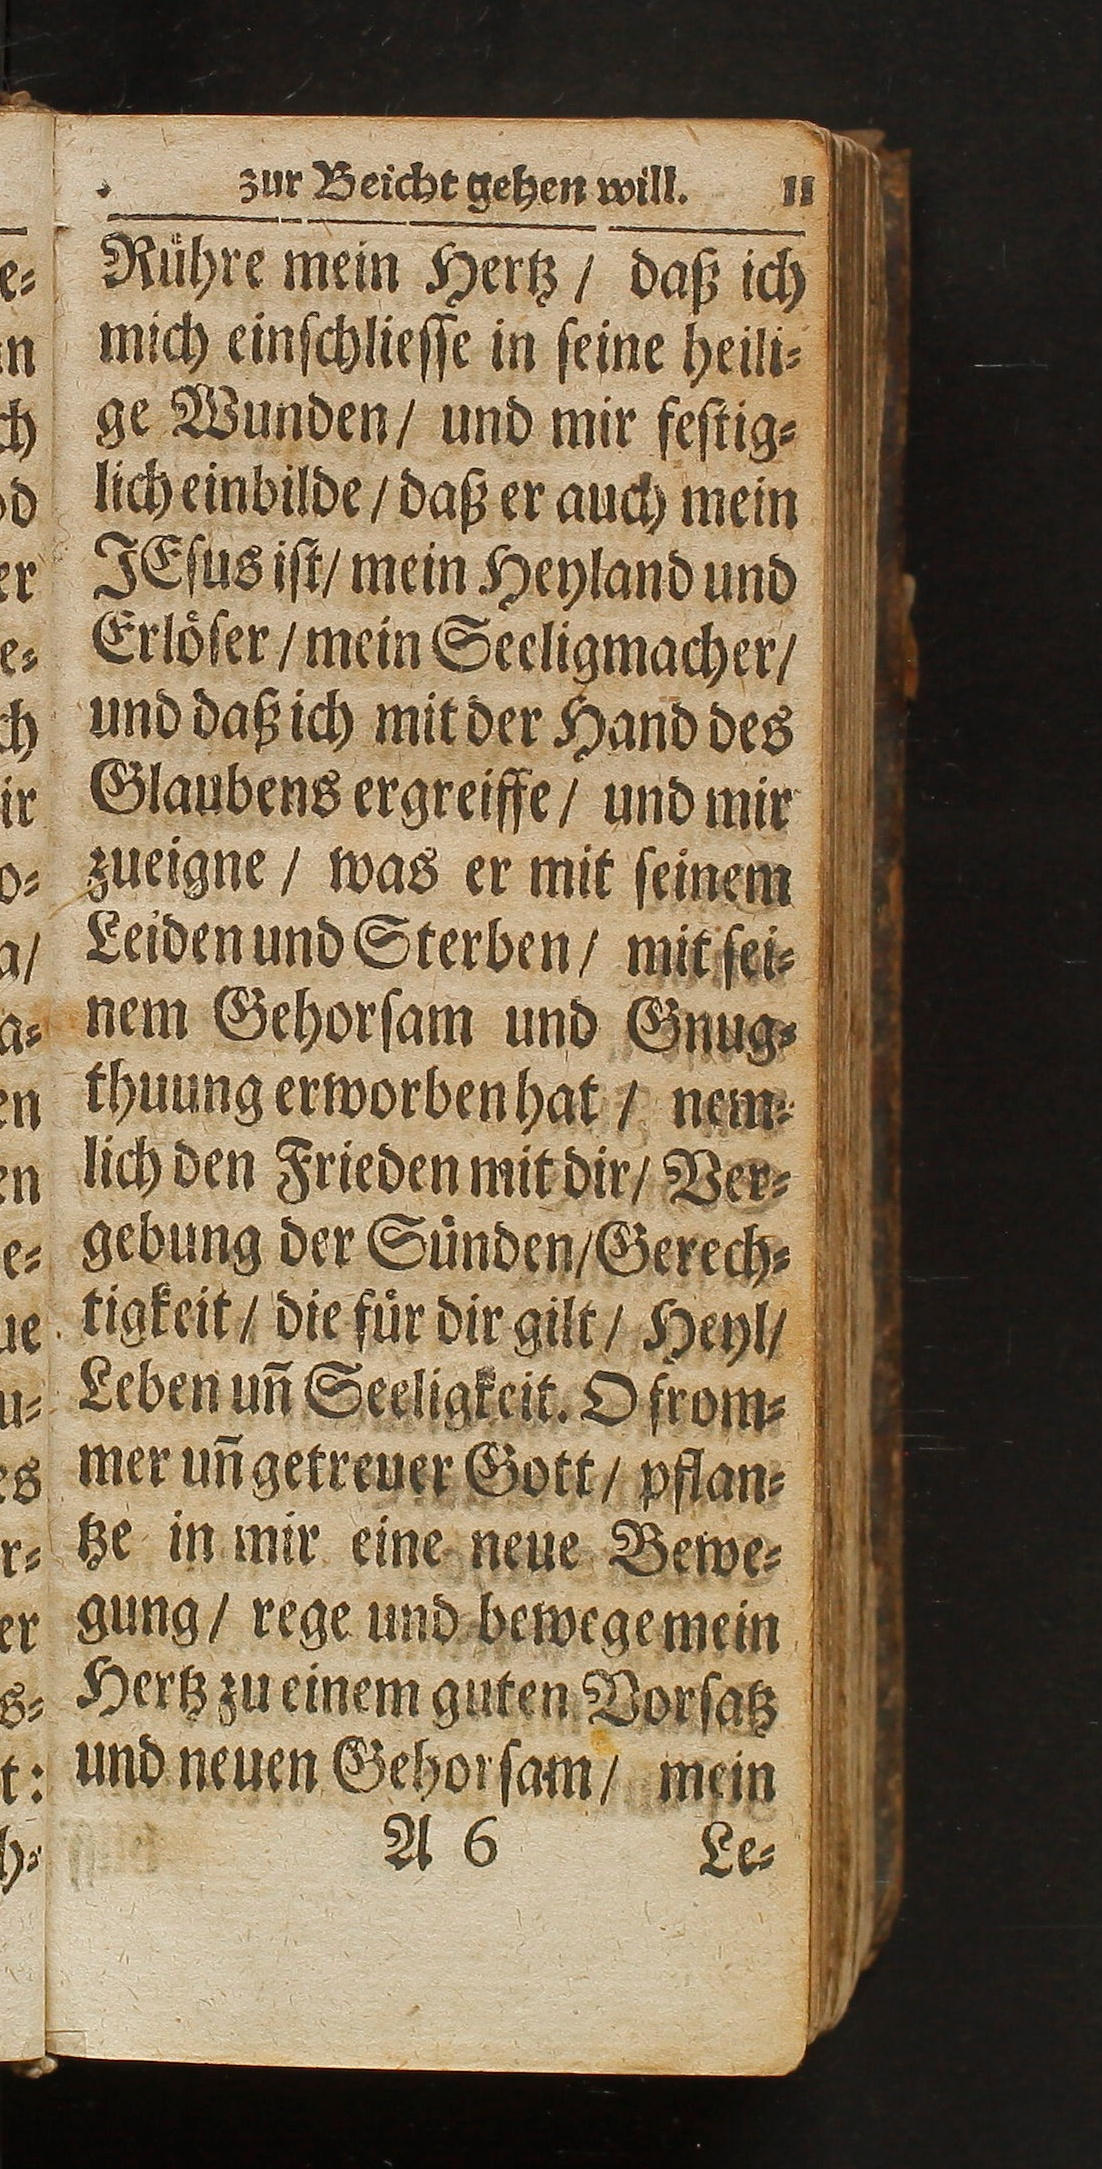 zur Beicht gehen will. 11
Rühre mein Hertz / daß ich
mich einschliesse in seine heili-
ge Wunden / und mir festig-
lich einbilde / daß er auch mein
JEsus ist / mein Heyland und
Erlöser / mein Seeligmacher /
und daß ich mit der Hand des
Glaubens ergreiffe / und mir
zueigne / was er mit seinem
Leiden und Sterben / mit sei-
nem Gehorsam und Gnug-
thuung erworben hat / nem-
lich den Frieden mit dir / Ver-
gebung der Sünden / Gerech-
tigkeit / die für dir gilt / Heyl /
Leben un̄ Seeligkeit. O from-
mer un̄ getreuer Gott / pflan-
tze in mir eine neue Bewe-
gung / rege und bewege mein
Hertz zu einem guten Vorsatz
und neuen Gehorsam / mein
A 6 Le-